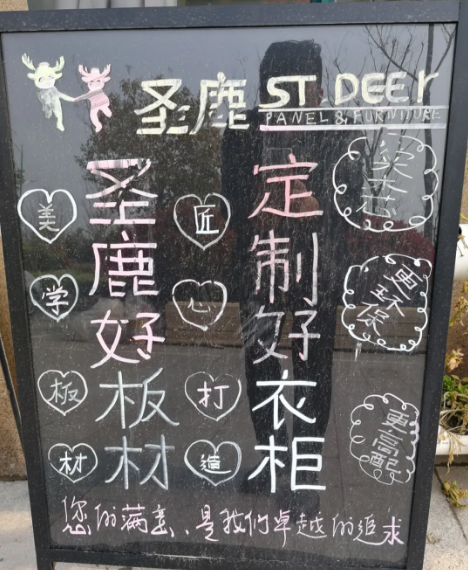 圣鹿 ST.DEEr
PANEL & FURNITURE
圣鹿好板材
定制好衣柜
美学板材
匠心打造
实木芯
更环保
更高配
您的满意、是我们卓越的追求